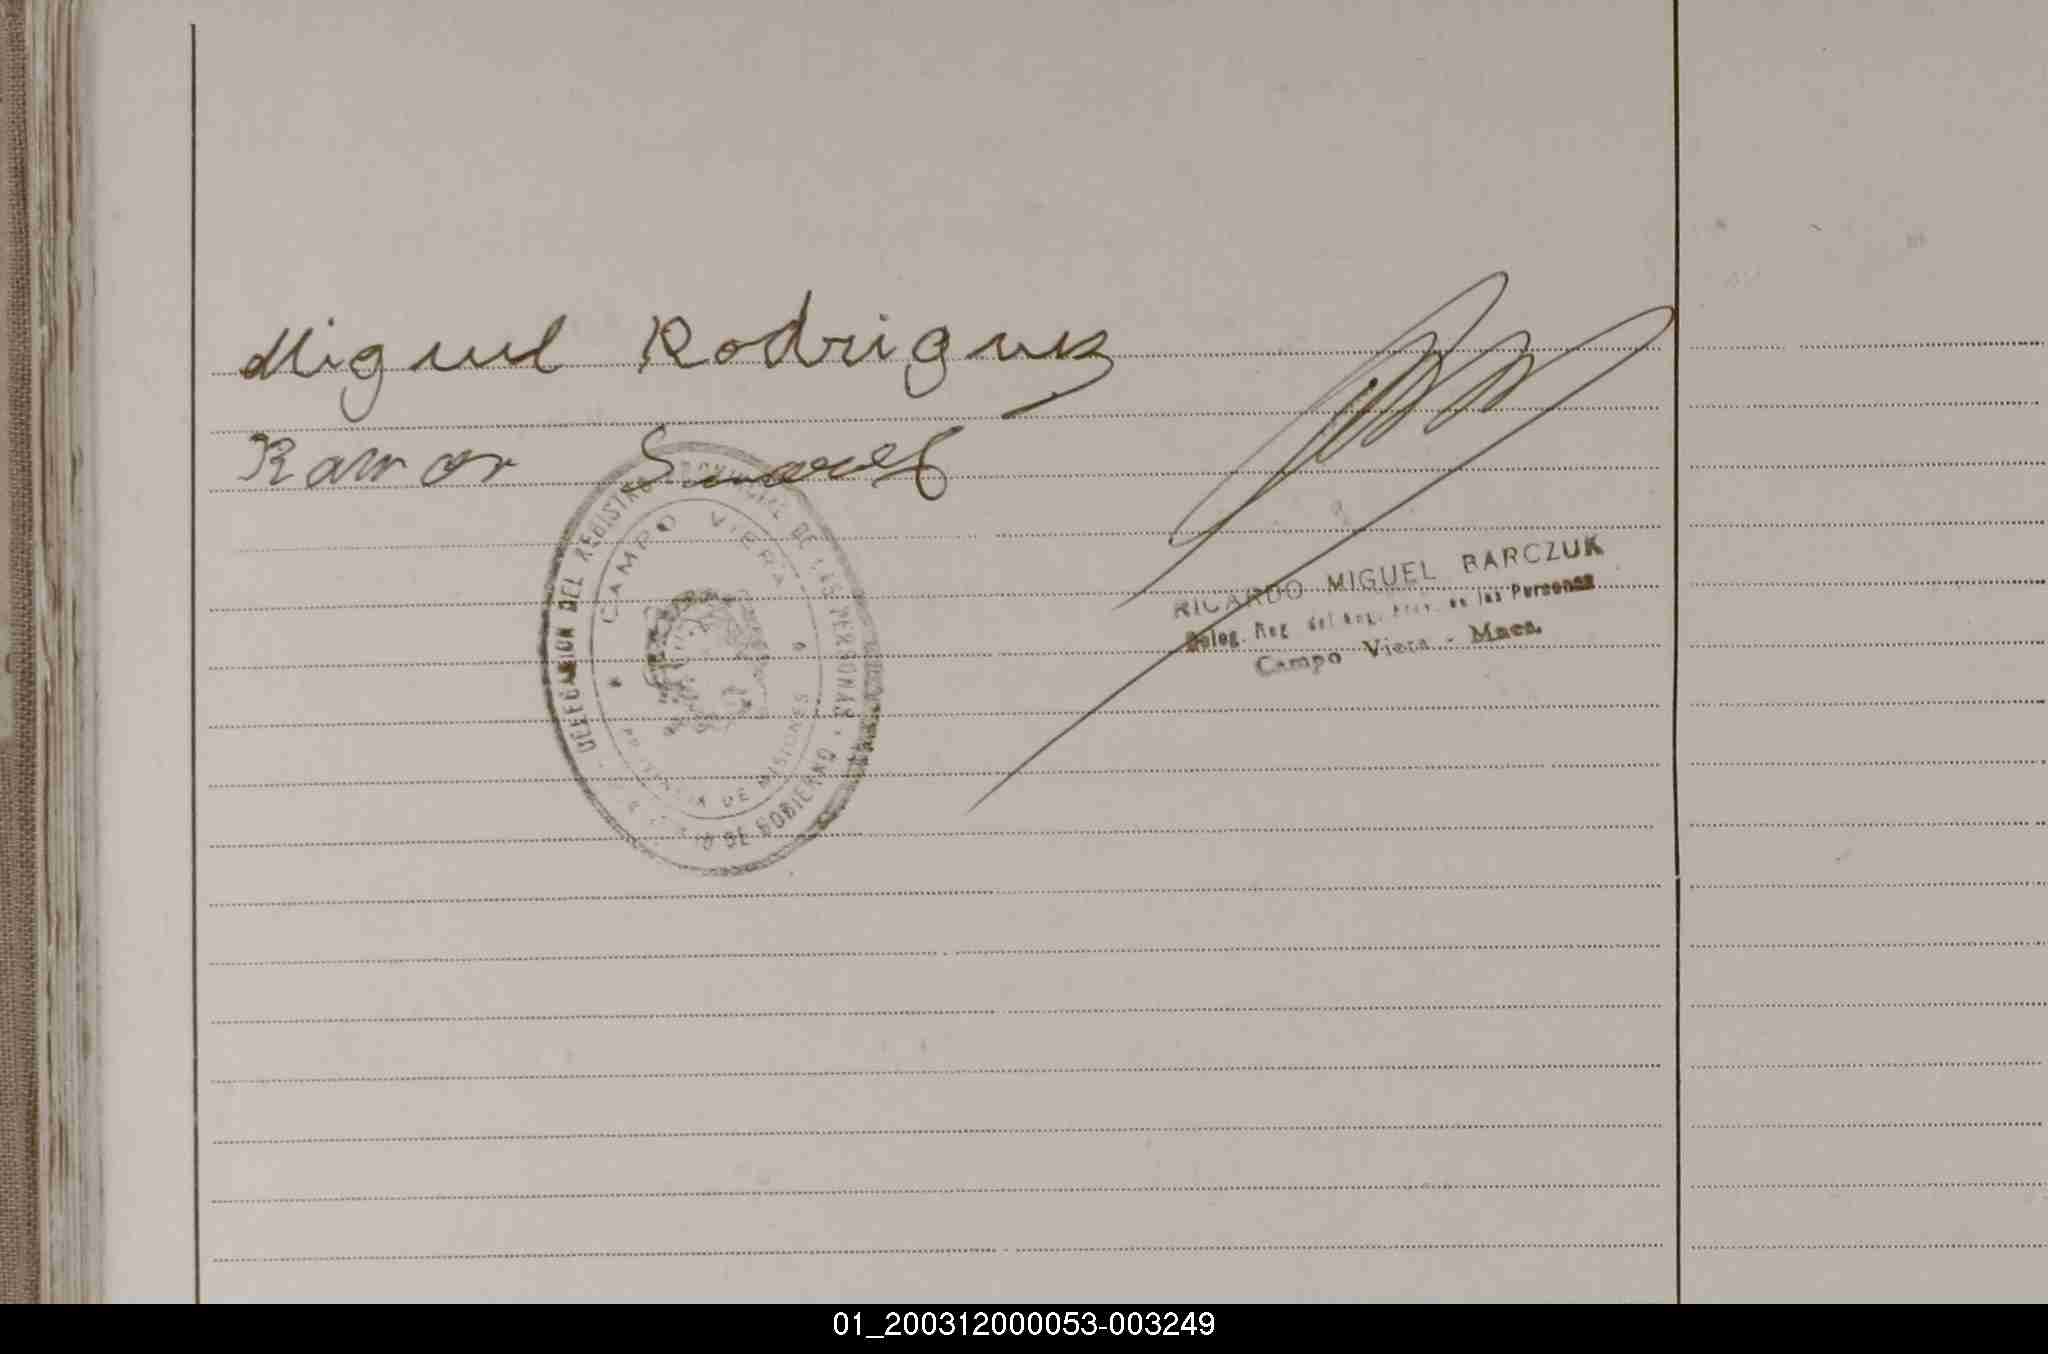 Miguel Rodriguez
Ramon
DELEGACION DEL REGISTRO PROVINCIAL DE LAS PERSONAS · DE GOBIERNO
CAMPO VIERA
PROVINCIA DE MISIONES
RICARDO MIGUEL BARCZUK
Deleg. Reg. del Reg. Prov. de las Personas
Campo Viera - Mnes.
01_200312000053-003249